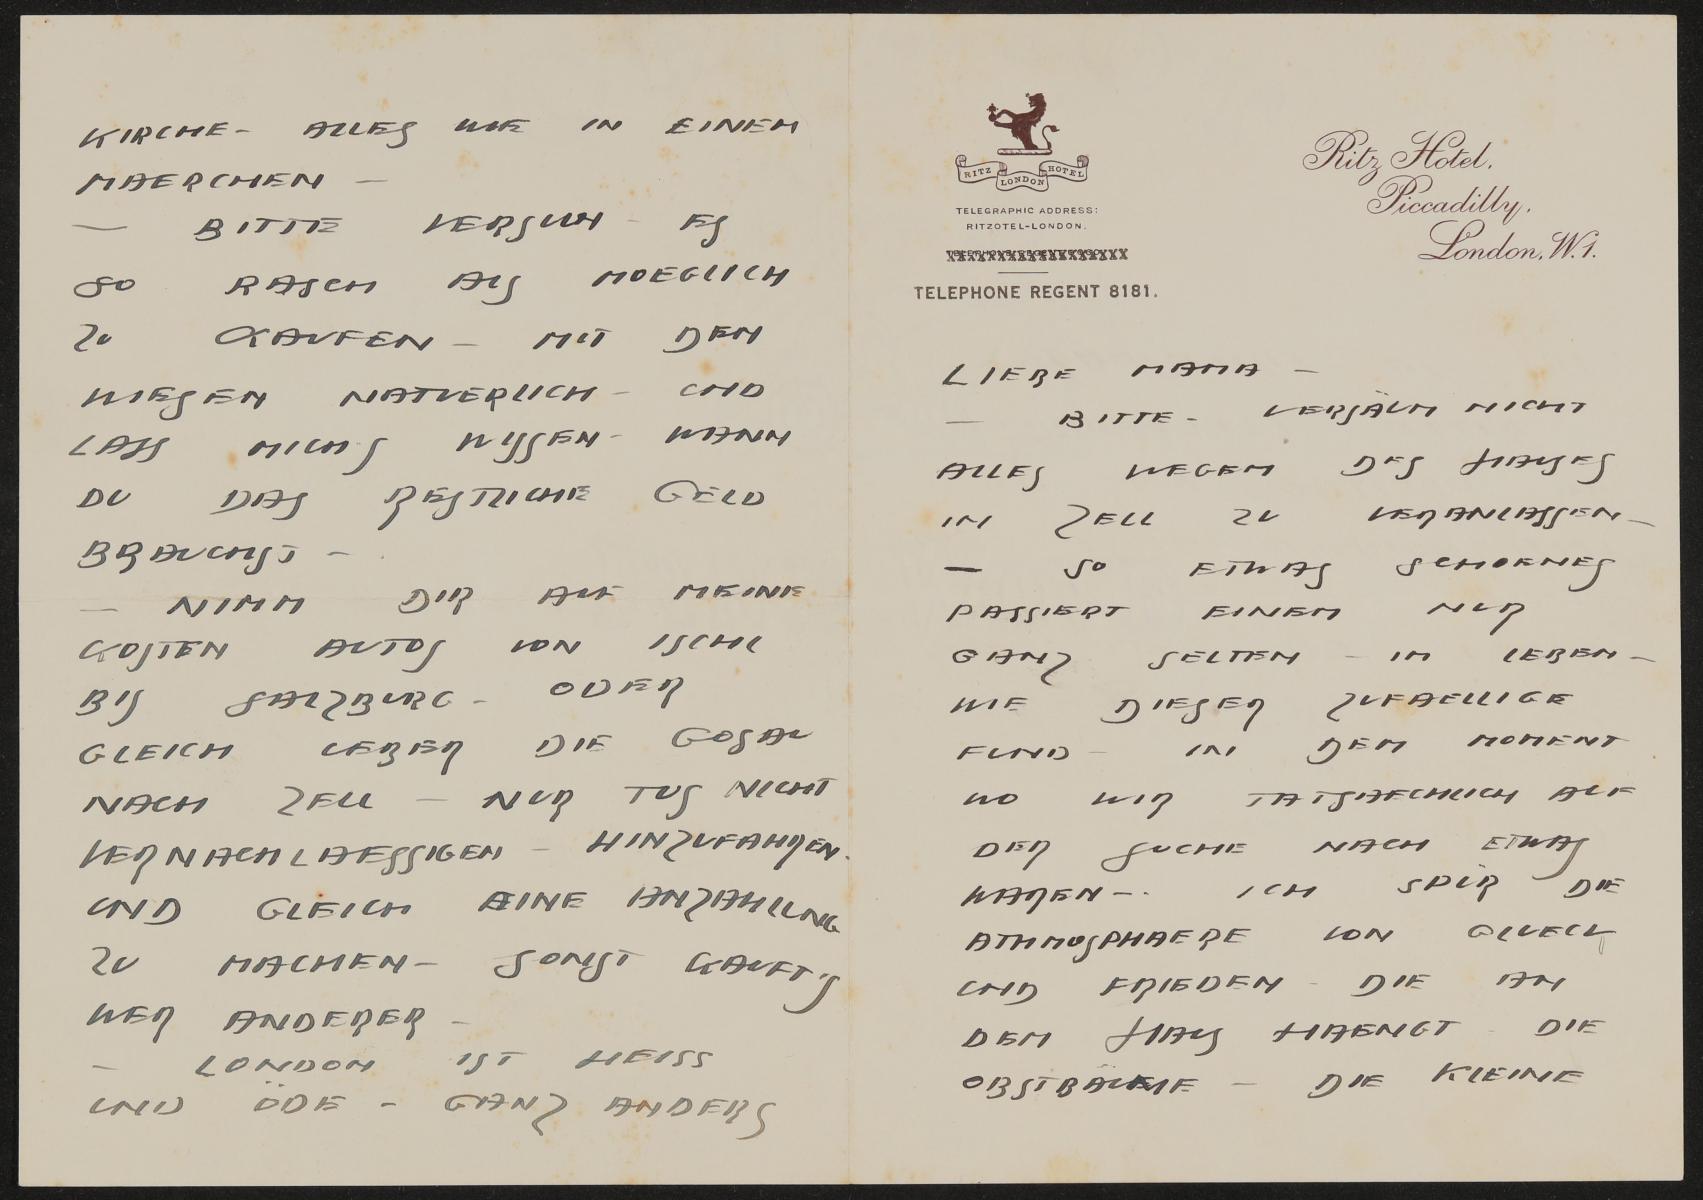 RITZ LONDON HOTEL
TELEGRAPHIC ADDRESS:
RITZOTEL-LONDON.
TELEPHONE REGENT 8181.
Ritz Hotel,
Piccadilly,
London, W.1.
LIEBE MAMA –
– BITTE – VERSÄUM NICHT
ALLES WEGEN DES HAUSES
IN ZELL ZU VERANLASSEN –
– SO ETWAS SCHOENES
PASSIERT EINEM NUR
GANZ SELTEN – IM LEBEN –
WIE DIESER ZUFAELLIGE
FUND – IN DEM MOMENT
WO WIR TATSAECHLICH AUF
DER SUCHE NACH ETWAS
WAREN –. ICH SPÜR DIE
ATHMOSPHAERE VON GLUECK
UND FRIEDEN – DIE AN
DEM HAUS HAENGT – DIE
OBSTBÄUME – DIE KLEINE
KIRCHE – ALLES WIE IN EINEM
MAERCHEN –
– BITTE VERSUCH – ES
SO RASCH ALS MOEGLICH
ZU KAUFEN – MIT DEN
WIESEN NATUERLICH – UND
LASS MICH'S WISSEN – WANN
DU DAS RESTLICHE GELD
BRAUCHST –
– NIMM DIR AUF MEINE
KOSTEN AUTOS VON ISCHL
BIS SALZBURG – ODER
GLEICH UEBER DIE GOSAU
NACH ZELL – NUR TUS NICHT
VERNACHLAESSIGEN – HINZUFAHREN.
UND GLEICH EINE ANZAHLUNG
ZU MACHEN – SONST KAUFT'S
WER ANDERER –
– LONDON IST HEISS
UND ÖDE – GANZ ANDERS